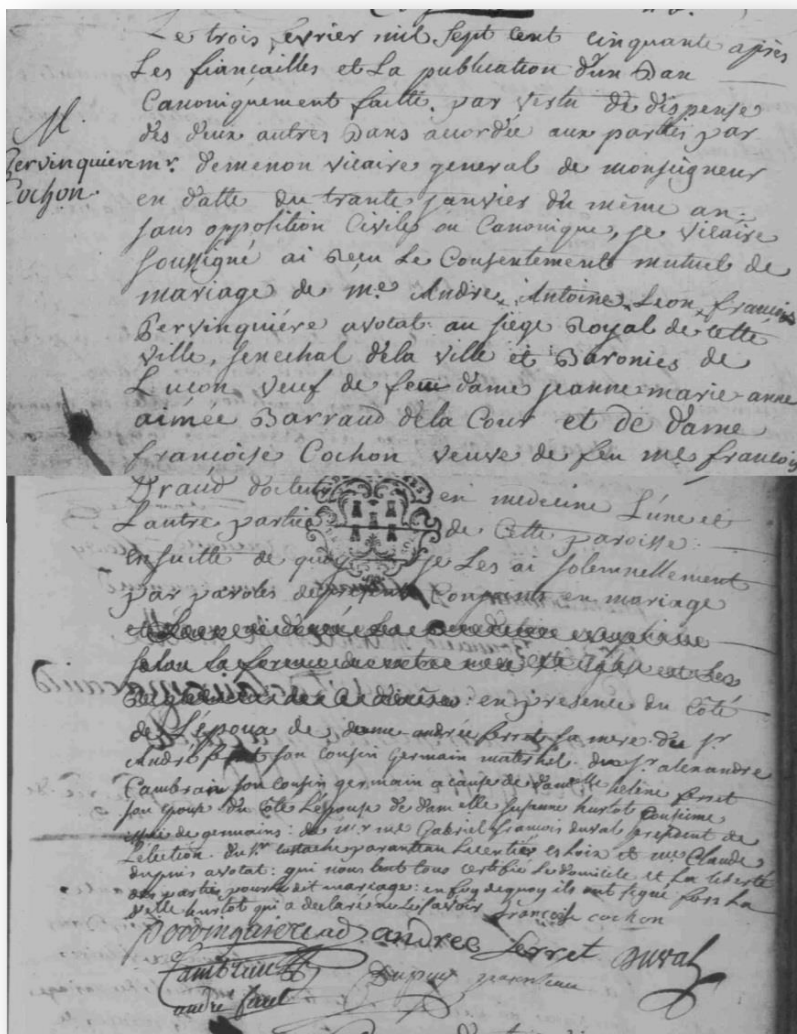 Le trois fevrier mil sept cent cinquante après
Les fiançailles et La publication d'un Ban
Canoniquement faitte par vertu de dispense
M.
des deux autres Bans acordée aux parties par
Pervinquiere
mr. demenon vicaire general de monseigneur
Cochon.
en datte du trante janvier du même an
sans opposition Civile ou Canonique, je vicaire
soussigné ai Recu Le Consentement mutuel de
mariage de me. André, Antoine, Leon, françois
Pervinquiére avocat au siege Royal de cette
ville, senechal dela ville et Baronies de
Luçon veuf de feu dame jeanne marie anne
aimée Barraud dela Cour et de dame
francoise Cochon veuve de feu me francois
Draud docteur en medecine L'une et
L'autre partie de Cette paroisse
Ensuitte de quoy je Les ai solemnellement
par paroles de present Conjoints en mariage
et
selon La
en presence du Côté
de L'epoux de dame andrée ferret sa mere du sr
André son cousin germain maternel du sr alexandre
Cambrain son cousin germain a cause de damelle helene ferret
son epouse du Côté L'epouse de damelle susanne hurtot Cousine
issüe de germains: de mr me Gabriel francois duval president de
L'élection du sr eustache paranteau Licentié es loix et me Claude
dupuis avocat: qui nous lont tous certifié Le domicile et La liberté
des parties pour le dit mariage: en foy de quoy ils ont signé fors La
delle hurtot qui a declaré ne le savoir françoise cochon
Pervinquiere andree ferret Duval
Cambrain Dupuy paranteau
andre